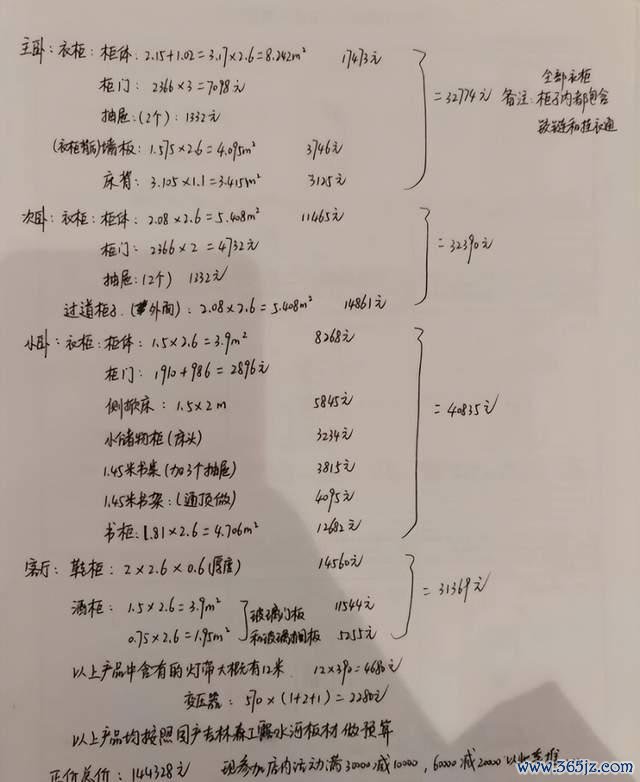 主卧：衣柜：柜体：2.15+1.02=3.17×2.6=8.242m² 17473元
全部衣柜
柜门：2366×3=7098元 =32774元 备注：柜子内都包含
抽屉：(2个)：1332元 铰链和挂衣通
(衣柜背后)墙板：1.575×2.6=4.095m² 3746元
床背：3.105×1.1=3.415m² 3125元
次卧：衣柜：柜体：2.08×2.6=5.408m² 11465元
柜门：2366×2=4732元 =32390元
抽屉：(2个) 1332元
过道柜子(外面)：2.08×2.6=5.408m² 14861元
小卧：衣柜：柜体：1.5×2.6=3.9m² 8268元
柜门：1910+986=2896元
侧掀床：1.5×2m 5845元 =40835元
小储物柜(床头) 3234元
1.45米书桌(加3个抽屉) 3815元
1.45米书架：(通顶做) 4095元
书柜：1.81×2.6=4.706m² 12682元
客厅：鞋柜：2×2.6×0.6(厚度) 14560元
=31369元
酒柜：1.5×2.6=3.9m² 玻璃门板 11544元
0.75×2.6=1.95m² 和玻璃搁板 5255元
以上产品中含有的灯带大概有12米 12×390=4680元
变压器：570×(1+2+1)=2280元
以上产品均按照国产吉林森工露水河板材做预算
正价总价：144328元 现参加店内活动满30000减10000，60000减20000以此类推
www.365jz.com